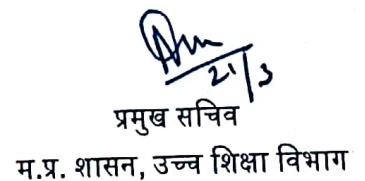 21/3
प्रमुख सचिव
म.प्र. शासन, उच्च शिक्षा विभाग